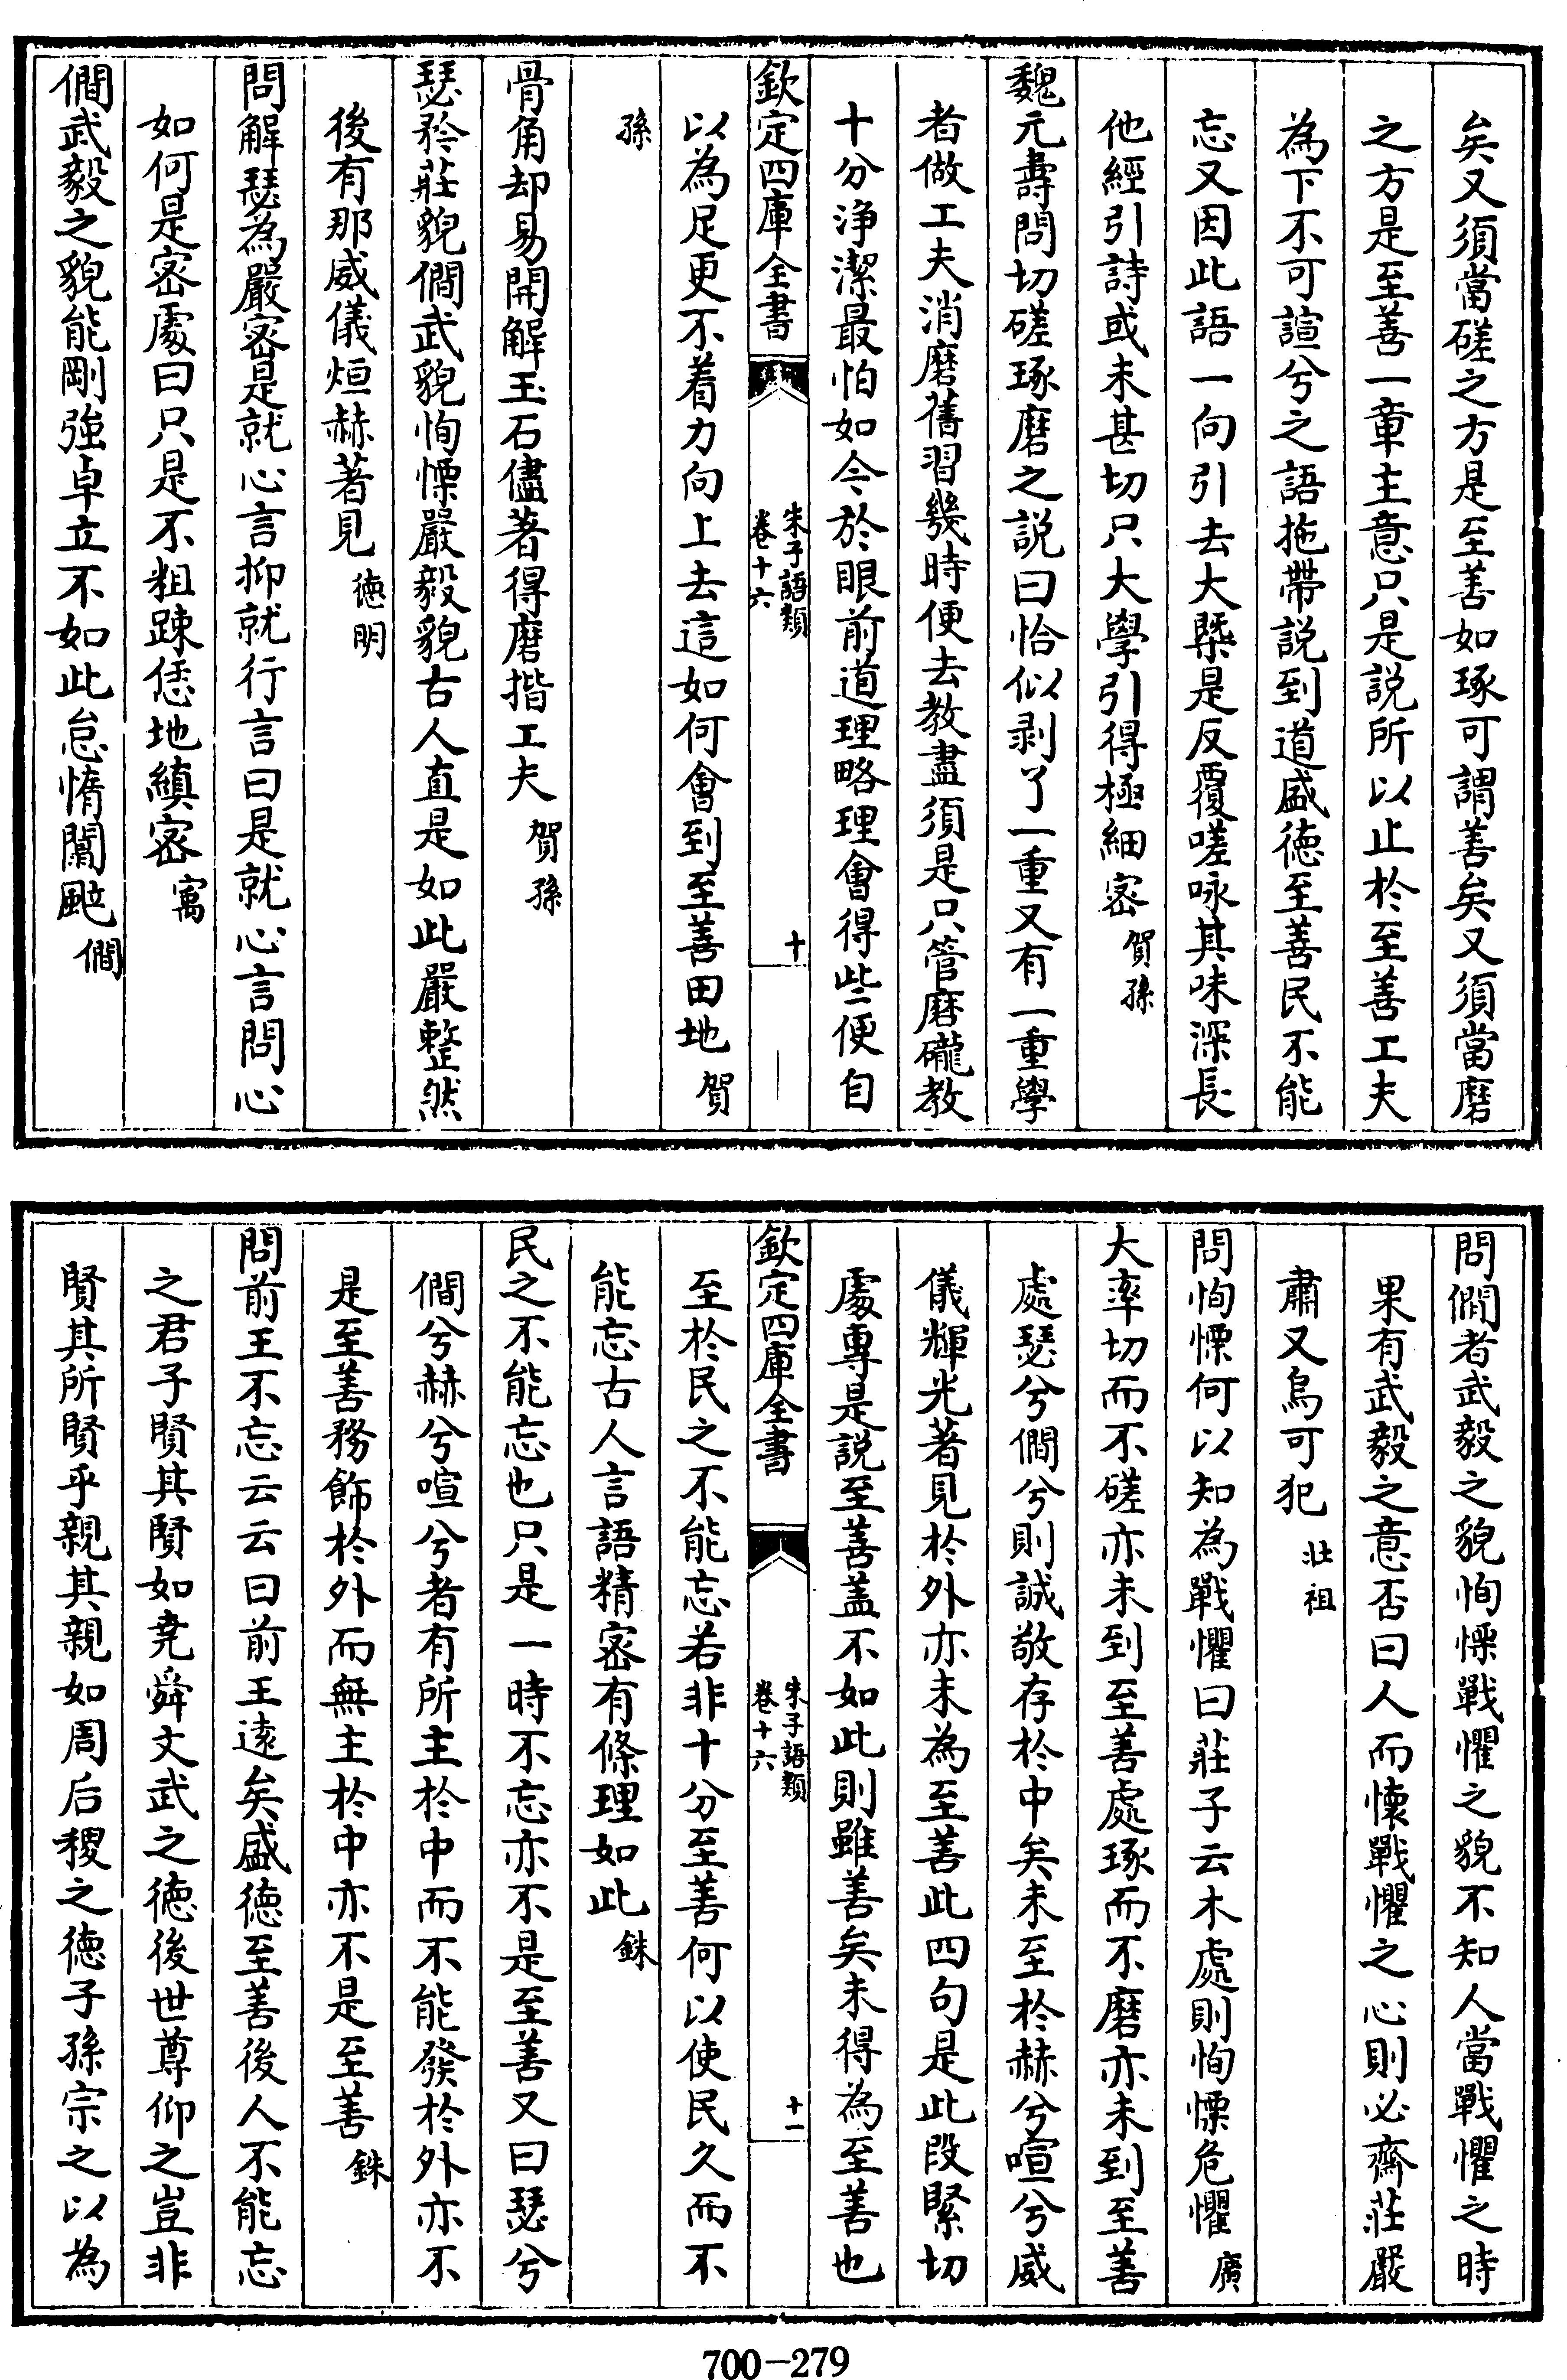 矣又須當磋之方是至善如琢可謂善矣又須當磨
之方是至善一章主意只是説所以止於至善工夫
為下不可諠兮之語拖帶説到道盛徳至善民不能
忘又因此語一向引去大槩是反覆嗟咏其味深長
他經引詩或未甚切只大學引得極細宻賀孫
魏元壽問切磋琢磨之説曰恰似剥了一重又有一重學
者做工夫消磨舊習幾時便去教盡須是只管磨礲教
十分浄潔最怕如今於眼前道理略理會得些便自
欽定四庫全書
朱子語類
卷十六
十
以為足更不着力向上去這如何會到至善田地賀
孫
骨角却易開解玉石儘著得磨揩工夫賀孫
瑟矜莊貌僩武貌恂慄嚴毅貌古人直是如此嚴整然
後有那威儀烜赫著見徳明
問解瑟為嚴宻是就心言抑就行言曰是就心言問心
如何是宻處曰只是不粗踈恁地縝宻㝢
僩武毅之貌能剛強卓立不如此怠惰闒颯僩
問僩者武毅之貌恂慄戰懼之貌不知人當戰懼之時
果有武毅之意否曰人而懷戰懼之心則必齋莊嚴
肅又烏可犯壯祖
問恂慄何以知為戰懼曰莊子云木處則恂慄危懼廣
大率切而不磋亦未到至善處琢而不磨亦未到至善
處瑟兮僩兮則誠敬存於中矣未至於赫兮喧兮威
儀輝光著見於外亦未為至善此四句是此段緊切
處專是説至善盖不如此則雖善矣未得為至善也
欽定四庫全書
朱子語類
卷十六
十一
至於民之不能忘若非十分至善何以使民久而不
能忘古人言語精宻有條理如此銖
民之不能忘也只是一時不忘亦不是至善又曰瑟兮
僩兮赫兮喧兮者有所主於中而不能發於外亦不
是至善務飾於外而無主於中亦不是至善銖
問前王不忘云云曰前王逺矣盛徳至善後人不能忘
之君子賢其賢如堯舜文武之徳後世尊仰之豈非
賢其所賢乎親其親如周后稷之徳子孫宗之以為
700-279